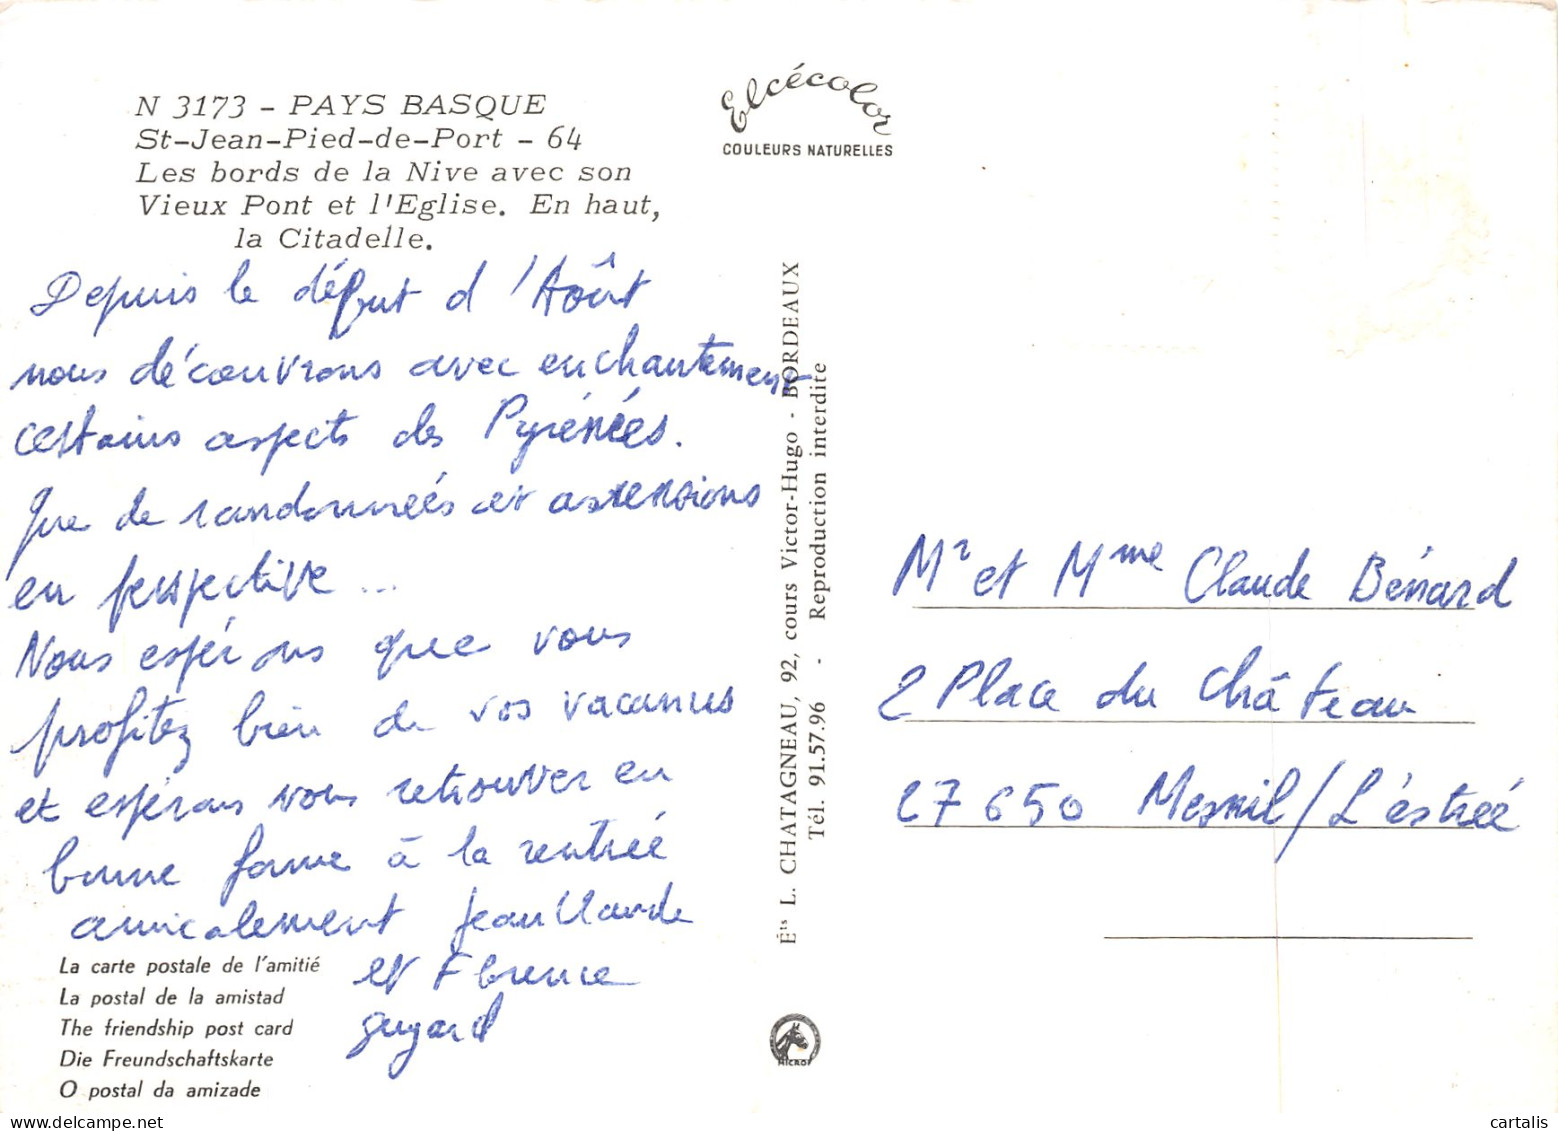 N 3173 - PAYS BASQUE
St-Jean-Pied-de-Port - 64
Les bords de la Nive avec son
Vieux Pont et l'Eglise. En haut,
la Citadelle.
Elcécolor
COULEURS NATURELLES
Depuis le début d'Août
nous découvrons avec enchantement
certains aspects des Pyrénées.
Que de randonnées et ascensions
en perspective...
Nous espérons que vous
profitez bien de vos vacances
et espérons vous retrouver en
bonne forme à la rentrée
amicalement Jean Claude
et Florence
Guyard
La carte postale de l'amitié
La postal de la amistad
The friendship post card
Die Freundschaftskarte
O postal da amizade
Éts L. CHATAGNEAU, 92, cours Victor-Hugo - BORDEAUX
Tél. 91.57.96 - Reproduction interdite
MICRO
Mr et Mme Claude Bénard
2 Place du Château
27650 Mesnil/L'éstréé
cartalis